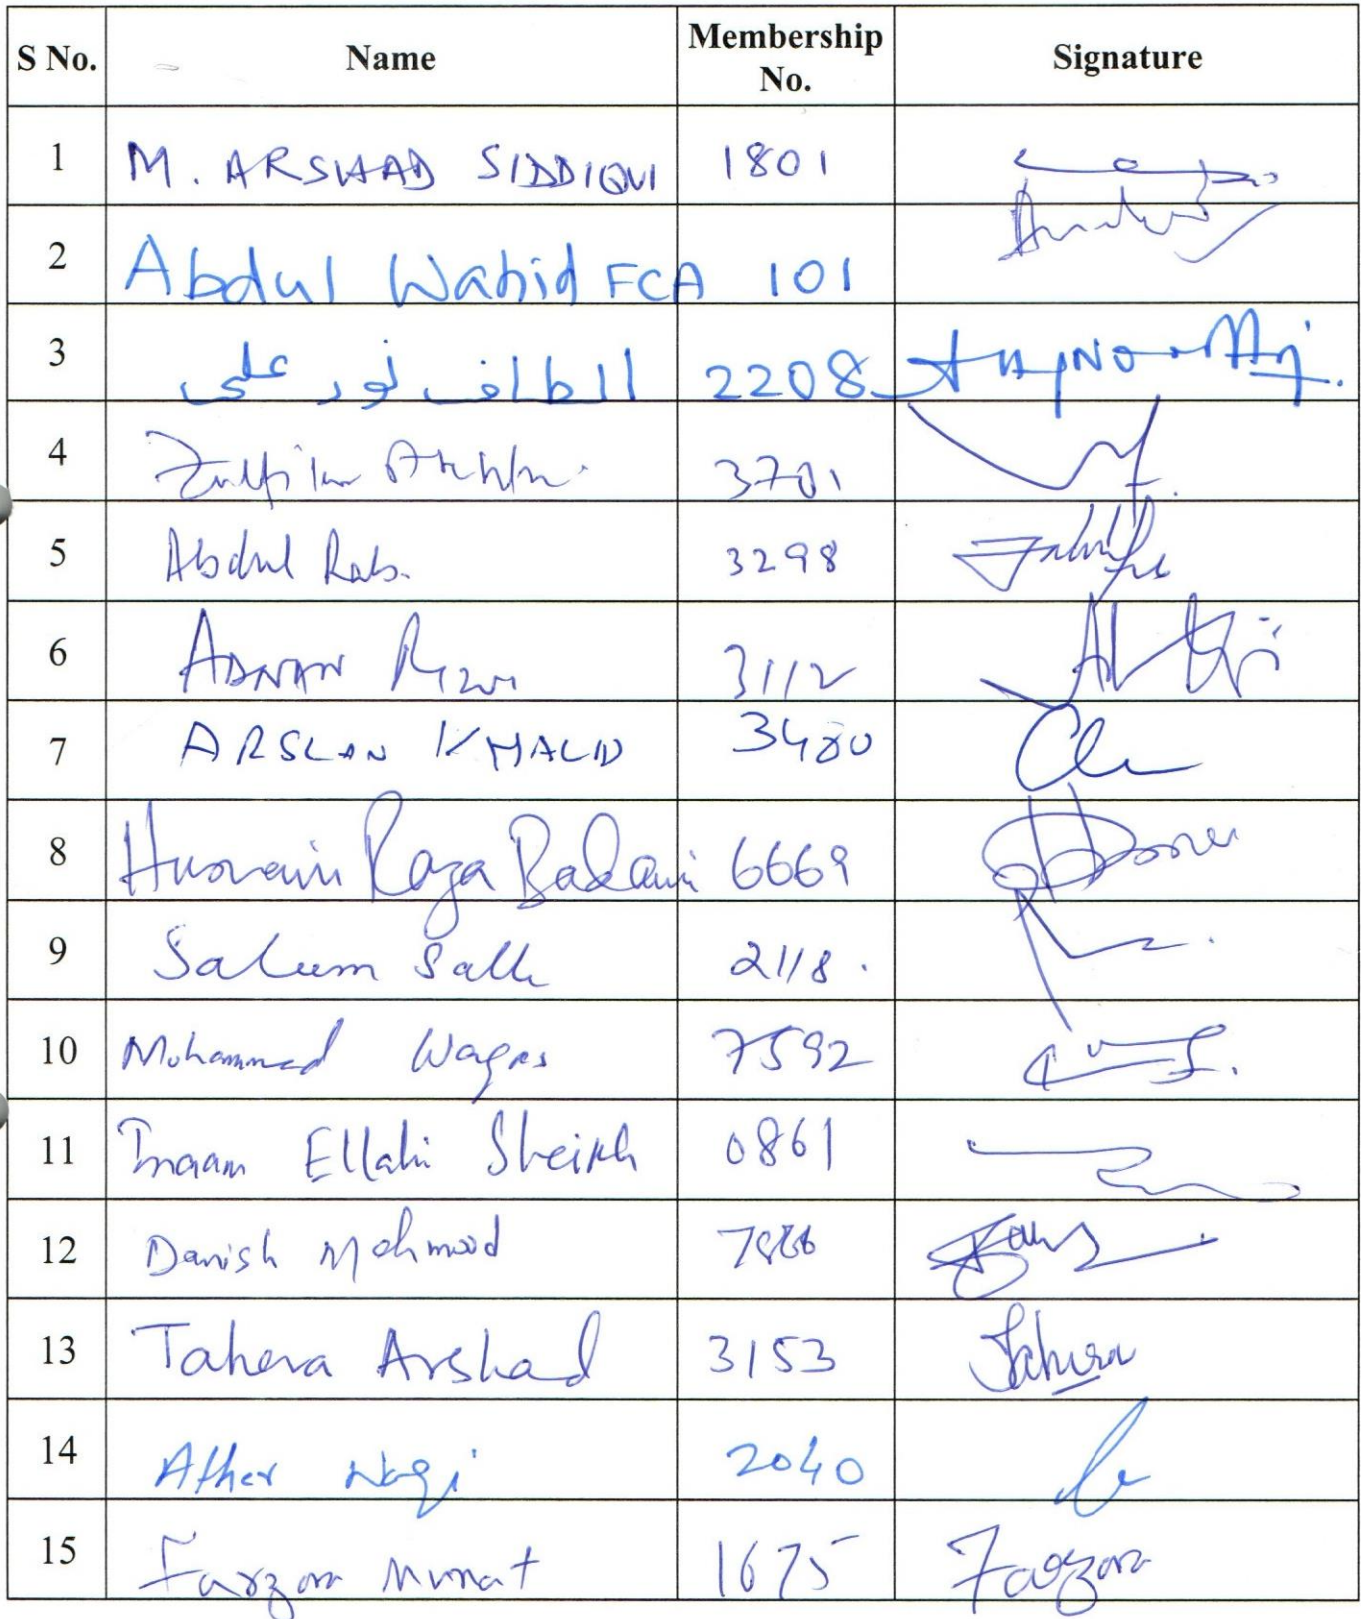 S No. Name Membership No. Signature
1 M. ARSHAD SIDDIQUI 1801
2 Abdul Wahid FCA 101
3 الطاف نور علی 2208
4 Zulfikar Akhtar 3701
5 Abdul Rab. 3298
6 ADNAN Rizvi 3112
7 ARSLAN KHALID 3480
8 Husnain Raza Badami 6669
9 Saleem Salle 2118.
10 Mohammad Waqas 7592
11 Inaam Ellahi Sheikh 0861
12 Danish Mehmood
13 Tahera Arshad 3153 Tahera
14 Ather Naqi 2040
15 Farzana Munat 1675 Farzana